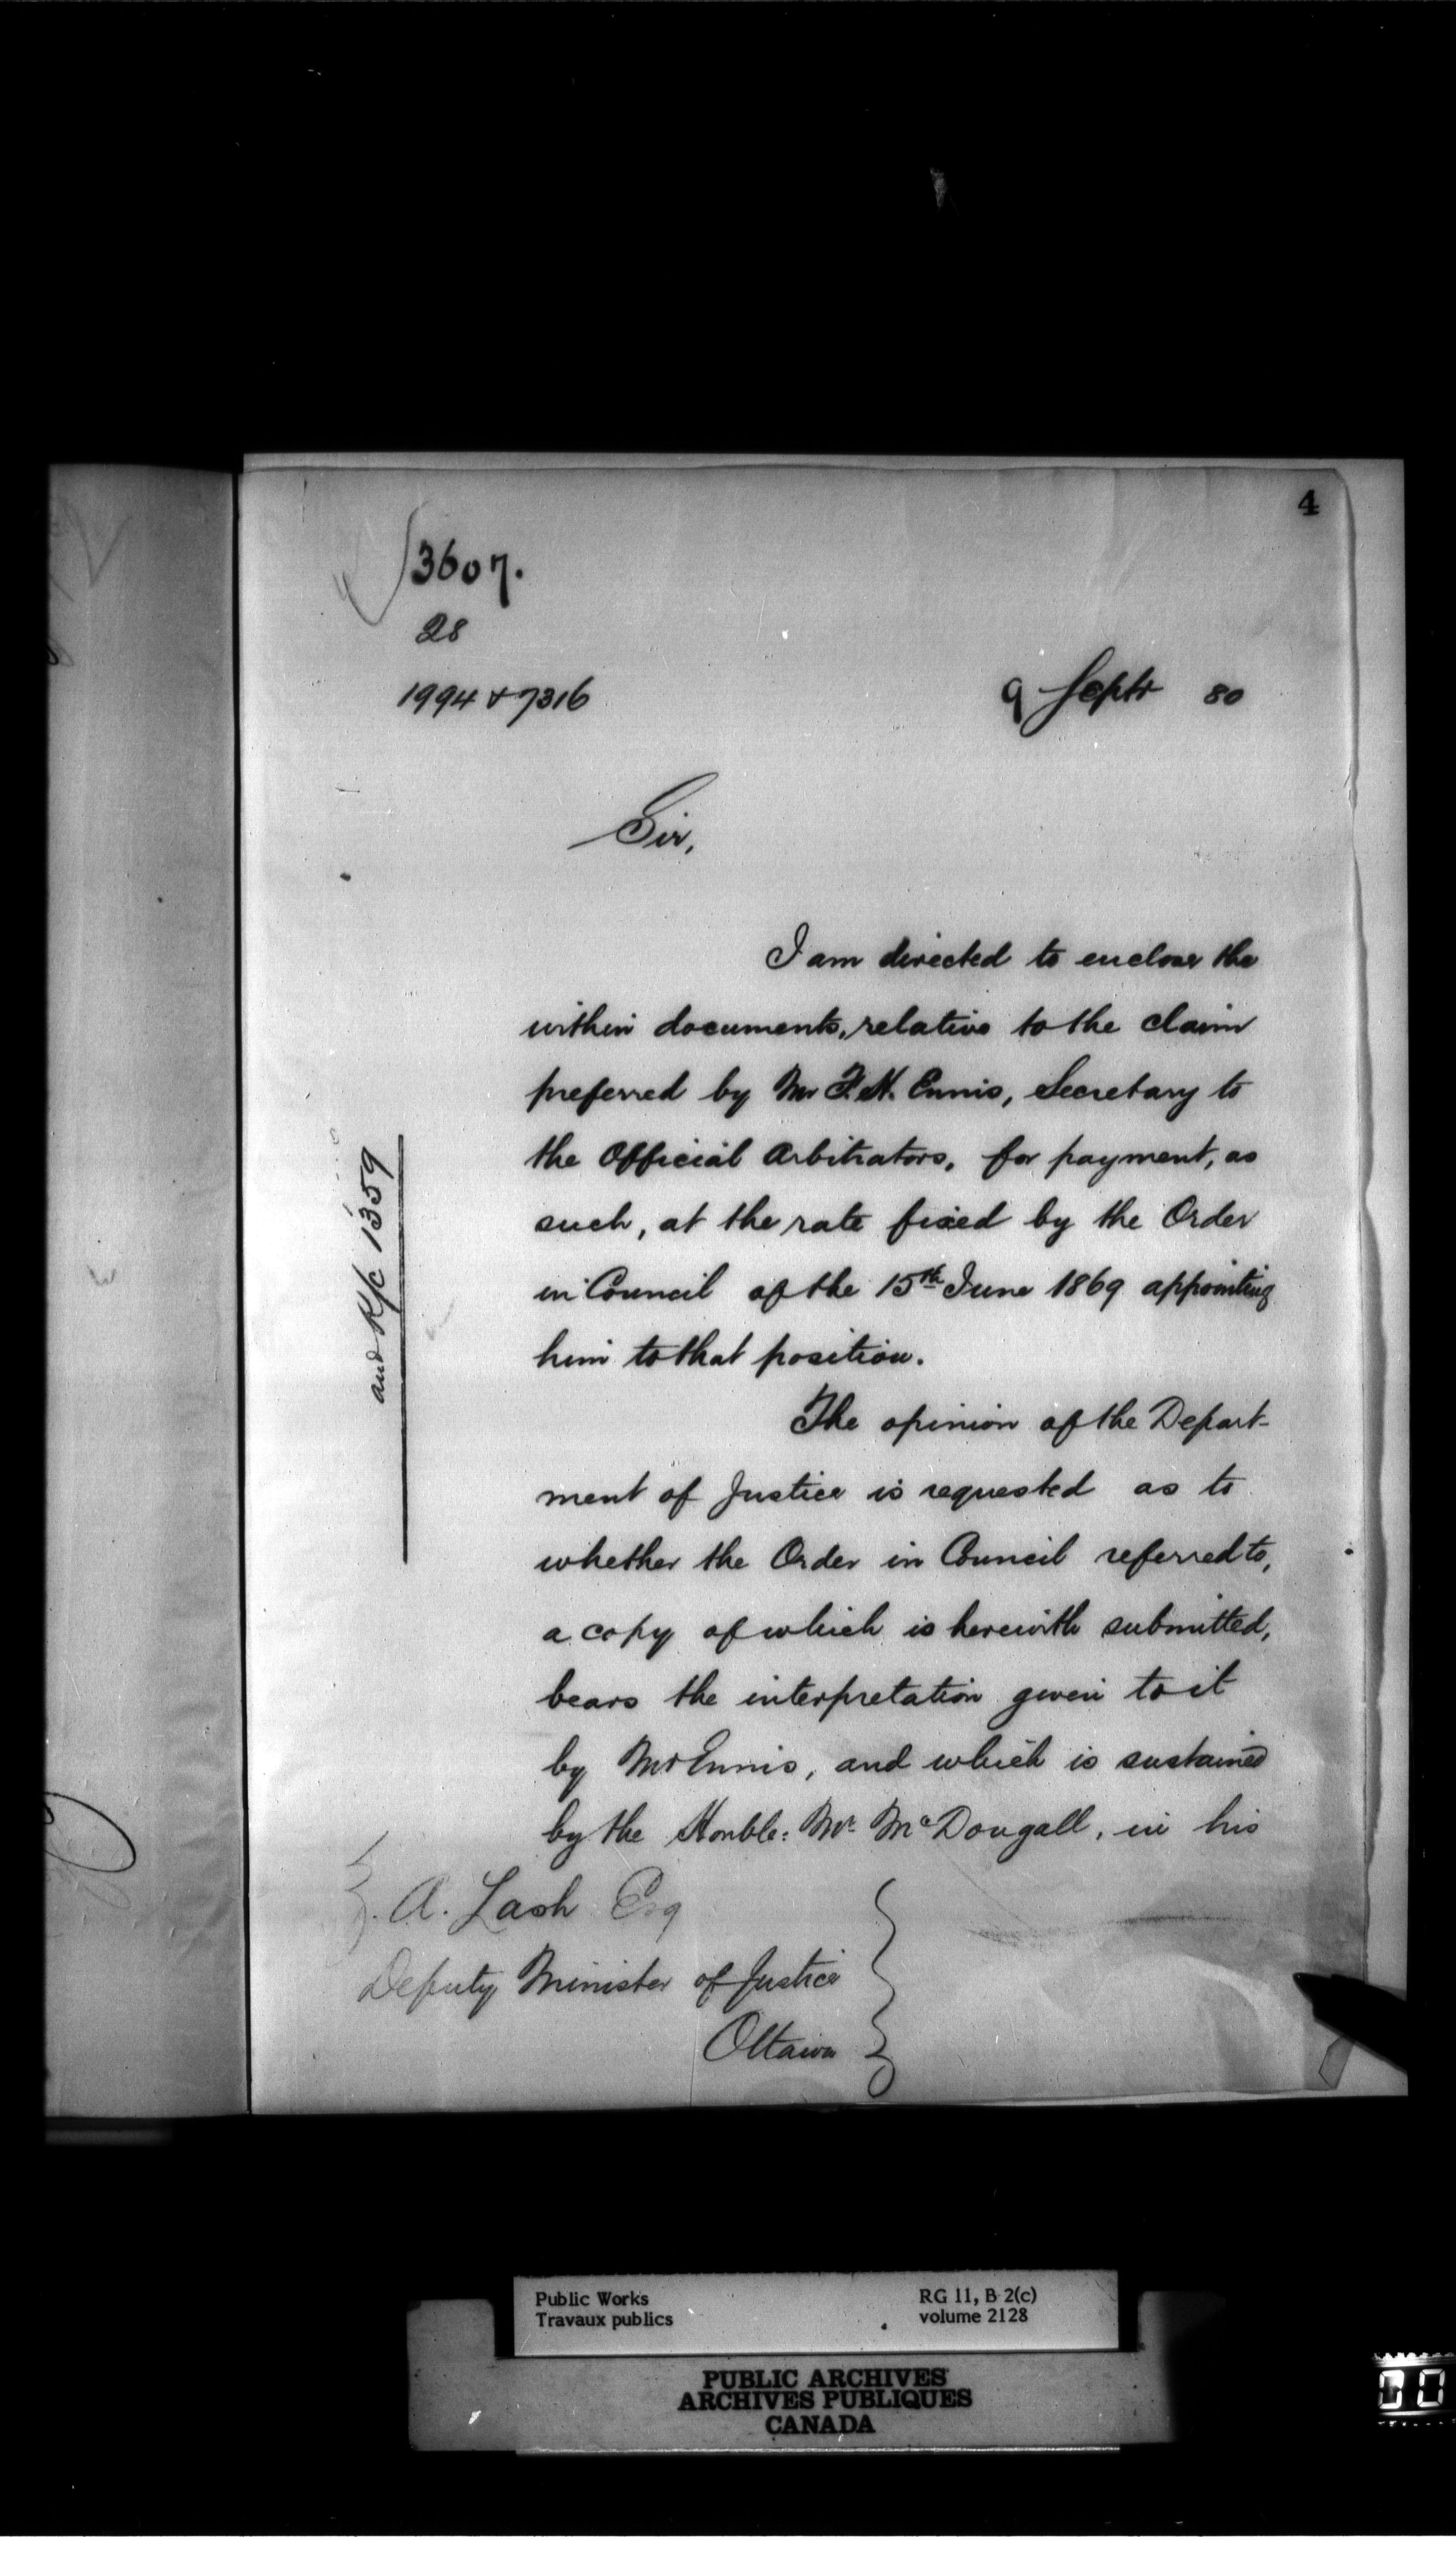 4
3607.
28
1994 & 7316
9 Septr 80
Sir,
I am directed to enclose the
within documents, relative to the claim
preferred by Mr F. H. Ennis, Secretary to
the Official Arbitrators, for payment, as
such, at the rate fixed by the Order
in Council of the 15th June 1869 appointing
him to that position.
and R/c 1359
The opinion of the Depart-
ment of Justice is requested as to
whether the Order in Council referred to,
a copy of which is herewith submitted,
bears the interpretation given to it
by Mr Ennis, and which is sustained
by the Honble: Mr. McDougall, in his
A. Lash Esq
Deputy Minister of Justice
Ottawa
Public Works
Travaux publics
RG 11, B 2(c)
volume 2128
PUBLIC ARCHIVES
ARCHIVES PUBLIQUES
CANADA